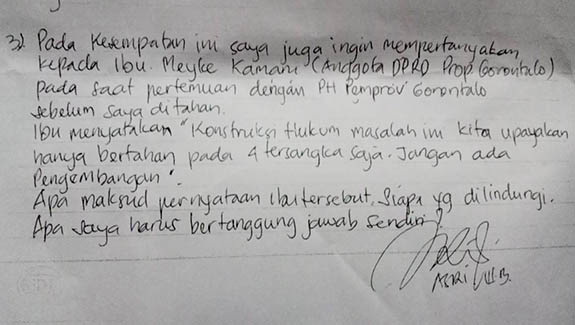 3). Pada Kesempatan ini saya juga ingin mempertanyakan
kepada Ibu. Meyke Kamaru (Anggota DPRD Prop Gorontalo)
pada saat pertemuan dengan PH Pemprov Gorontalo
sebelum saya ditahan.
Ibu menyatakan "Konstruksi Hukum masalah ini kita upayakan
hanya bertahan pada 4 tersangka saja. Jangan ada
Pengembangan".
Apa maksud pernyataan ibu tersebut. Siapa yg dilindungi.
Apa saya harus bertanggung jawab sendiri?